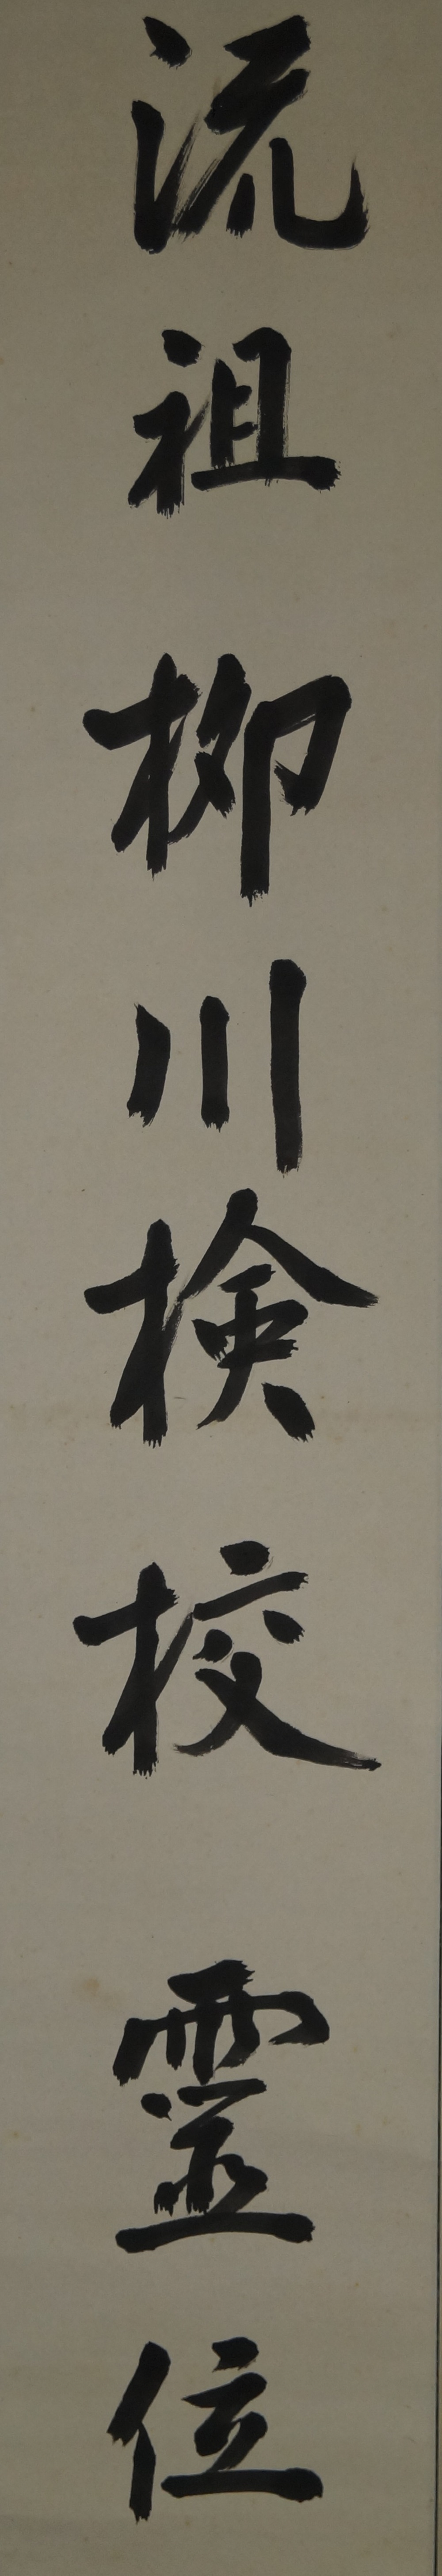 流祖柳川検校霊位